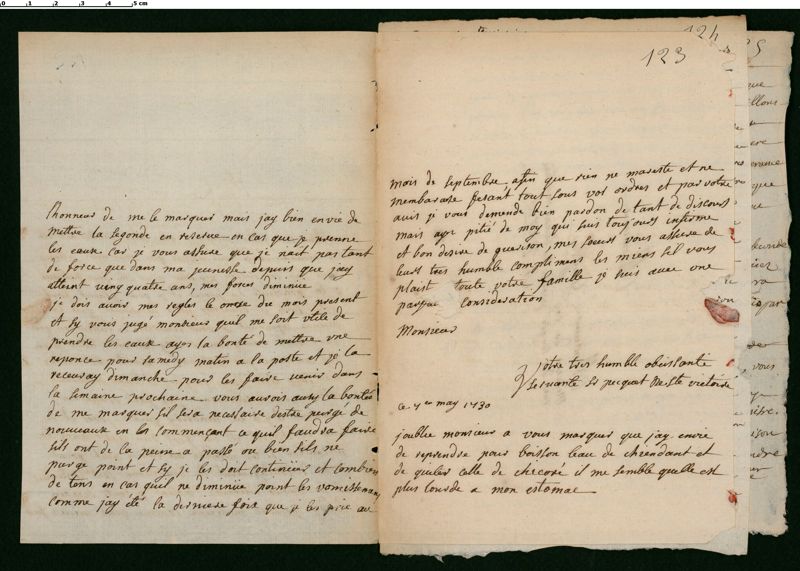 0 1 2 3 4 5 cm
lhonneur de me le marquer mais jay bien envie de
mettre la segonde en reserue en cas que je prenne
les eaux car je vous assure que je nait pas tant
de force que dans ma jeunesse depuis que jay
atteint vingquatre ans, mes forces diminue
je dois auoir mes regles le onze du mois present
et sy vous jugé monsieur quil me soit utile de
prendre les eaux ayes la bonté de mettre une
reponce pour samedy matin a la poste et je la
receuray dimanche pour les faire venir dans
la semaine prochaine vous aurois aussy la bontés
de me marquer sil sera necessaire destre purgé de
nouueaux en les commençant ce quil faudra faire
sils ont de la peine a passé ou bien sils ne
purge point et sy je les doit continuer et combien
de tems en cas quil ne diminue point les vomissemens
comme jay été la derniere fois que je les prie au
123
mois de septembre afin que rien ne mareste et ne
membarasse fesant tout sous vos ordres et par votre
auis je vous demende bien pardon de tant de discours
mais ayes pitié de moy qui suis toujours infirme
et bon desire de guerison, mes soeurs vous assure de
leurs tres humble compliment les miens sil vous
plaist a toute votre famille je suis auec une
parfaite consideration
Monsieur
Votre tres humble obeissante
seruante sr pecquet de ste victoire
ce 7 may 1730
joublie monsieur a vous marquer que jay envie
de reprendre pour boisson leau de chiendant et
de quiter celle de chicoré il me semble quelle est
plus lourde a mon estomac
124